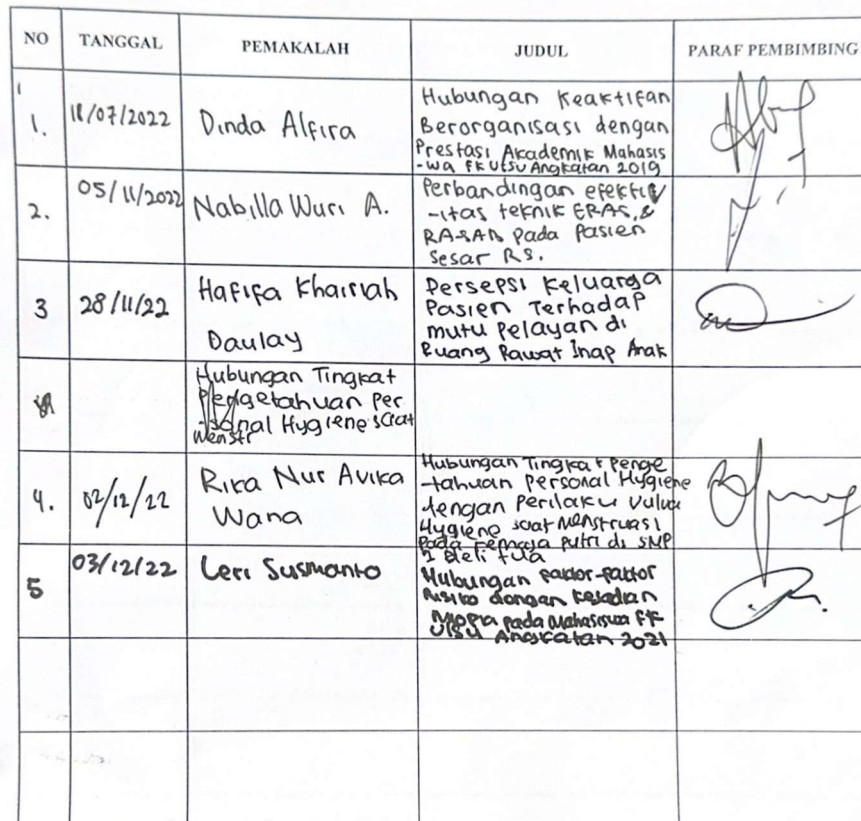 NO TANGGAL PEMAKALAH JUDUL PARAF PEMBIMBING
1. 18/07/2022 Dinda Alfira
Hubungan Keaktifan
Berorganisasi dengan
Prestasi Akademik Mahasis
-wa FK UISU Angkatan 2019
2. 05/11/2022 Nabilla Wuri A.
Perbandingan efektiv
-itas teknik ERAS, &
pada Pasien
Sesar RS.
3 28/11/22 Hafifa Khairiah
Daulay
Persepsi Keluarga
Pasien Terhadap
mutu Pelayan di
Ruang Rawat Inap Anak
Hubungan Tingkat
Pengetahuan Per
-sonal Hygiene saat
Menstr
4. 02/12/22 Rika Nur Avika
Wana
Hubungan Tingkat Penge
-tahuan Personal Hygiene
dengan Perilaku Vulva
Hygiene saat Menstruasi
Pada Remaja Putri di SMP
1 Deli Tua
5 03/12/22 Leri Susmanto
Hubungan Faktor-Faktor
Risiko dengan Kejadian
Miopia pada Mahasiswa FK
UISU Angkatan 2021